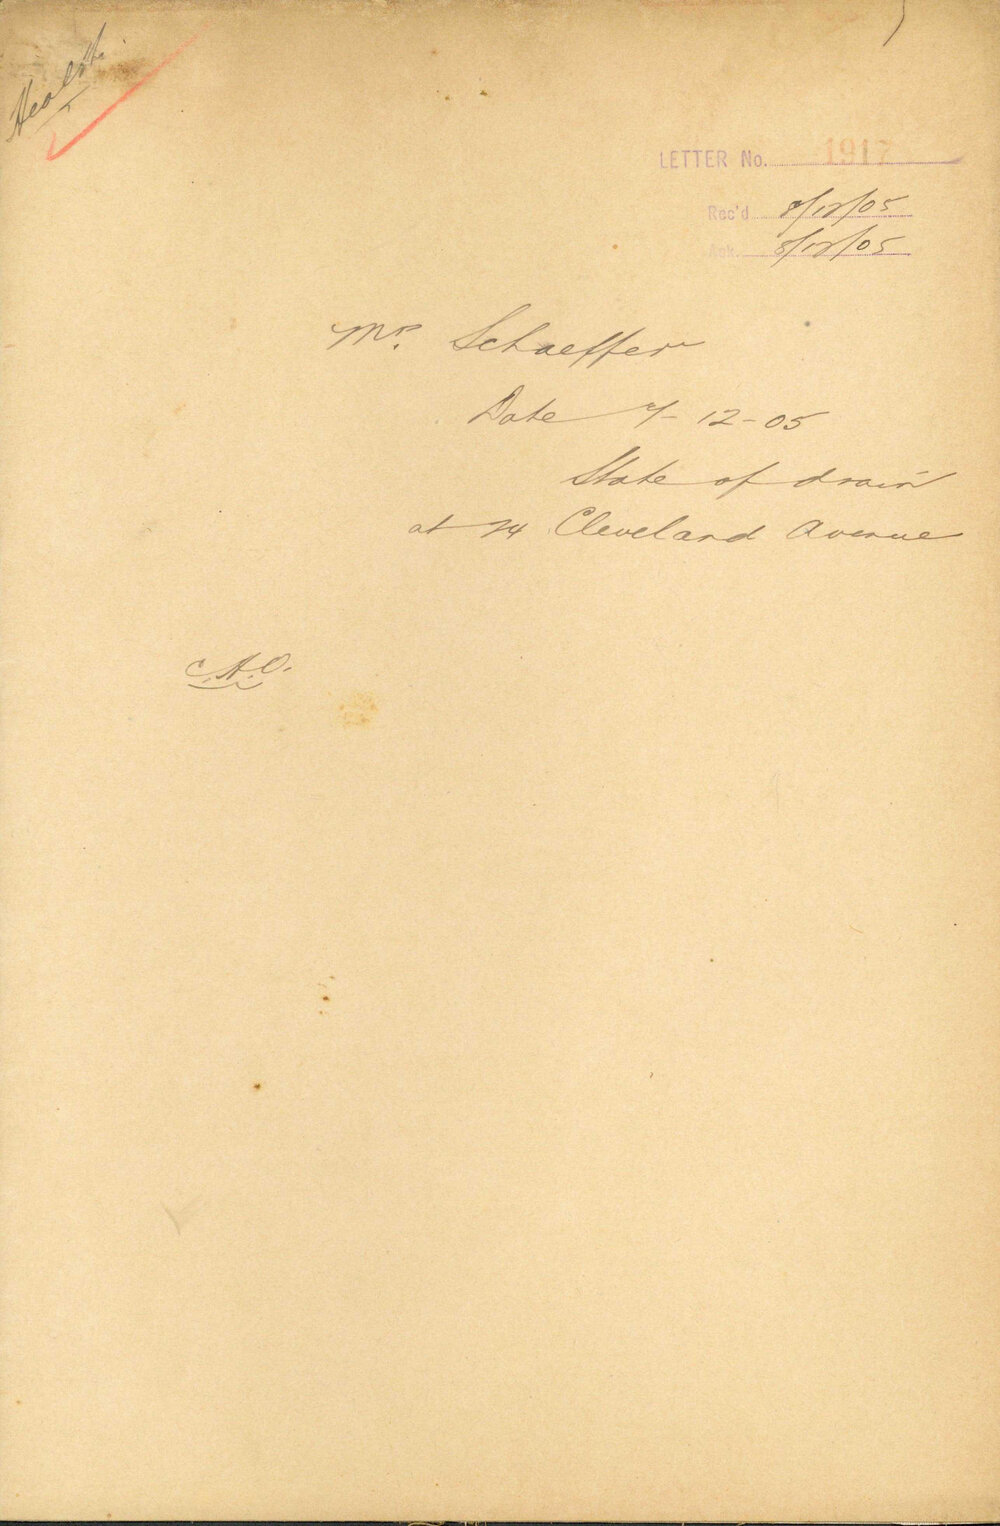 Health
LETTER No. 1917
Rec'd 8/12/05
Ack. 8/12/05
Mr. Schaeffer
Date 7-12-05
State of drain
at 74 Cleveland Avenue